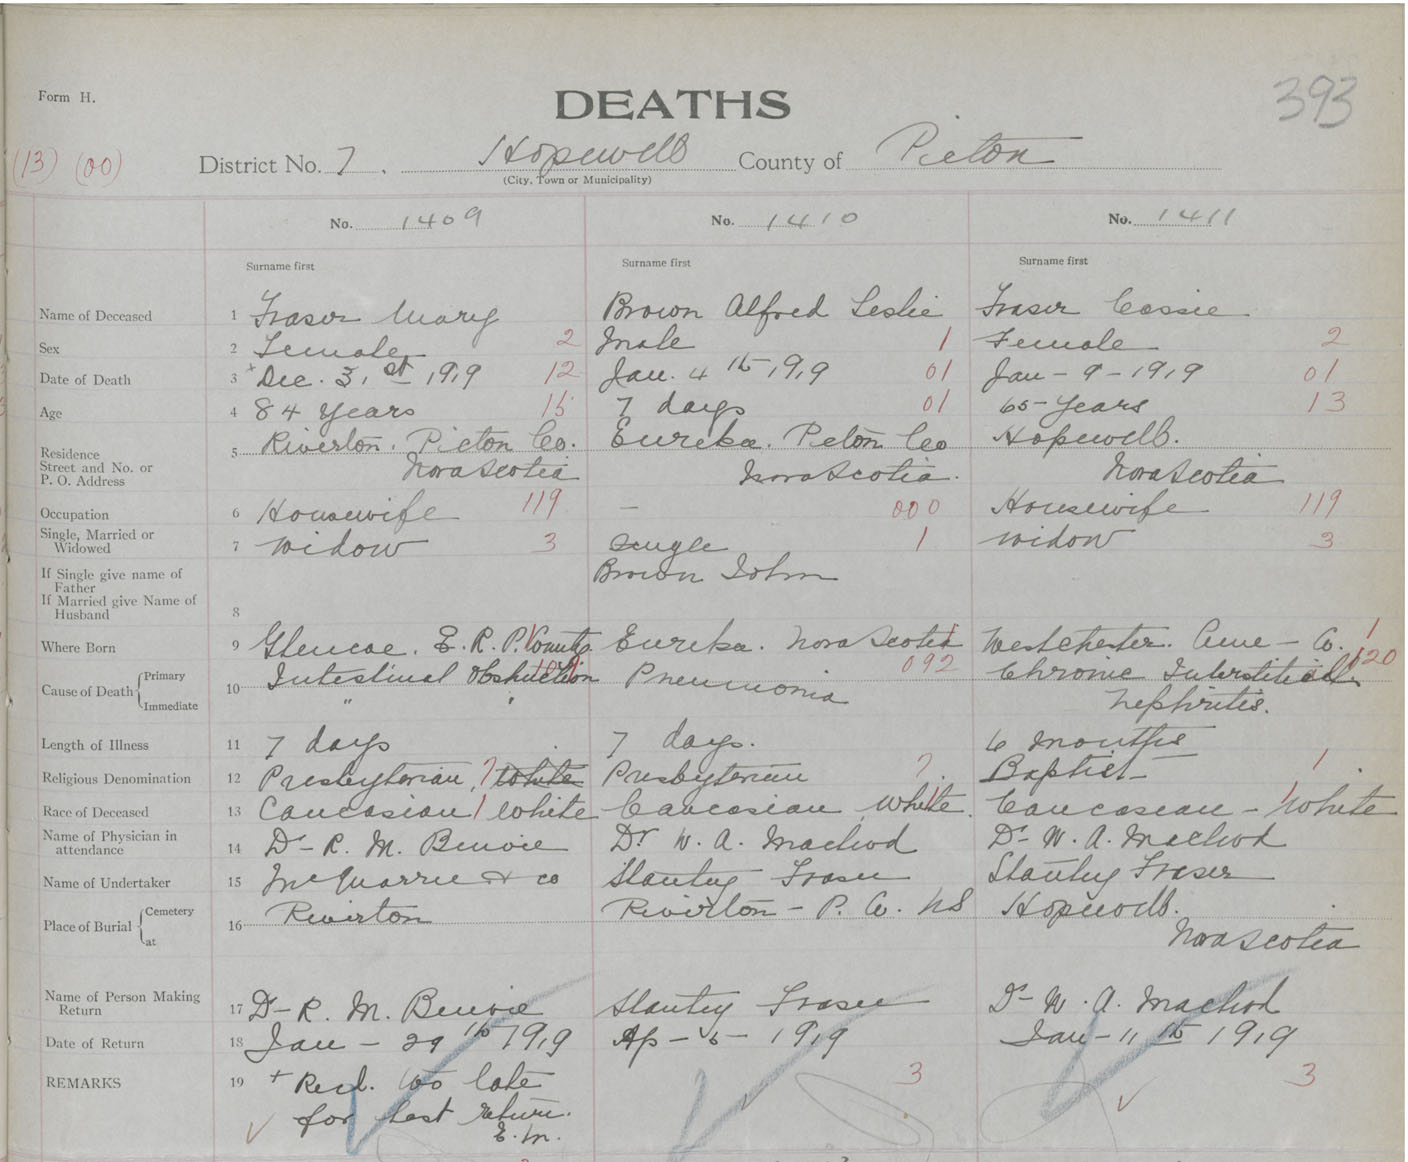 Form H.
DEATHS
393
(13) (00)
District No. 7. Hopewell County of Pictou
(City, Town or Municipality)
No. 1409 No. 1410 No. 1411
Surname first Surname first Surname first
Name of Deceased 1 Fraser Mary Brown Alfred Leslie Fraser Cassie
Sex 2 Female 2 Male 1 Female 2
Date of Death 3 + Dec. 31st 1919 12 Jan. 4th 1919 01 Jan - 9 - 1919 01
Age 4 84 Years 15 7 days 01 65 Years 13
Residence 5 Riverton. Pictou Co. Eureka. Picton Co Hopewell.
Street and No. or
P. O. Address Nova Scotia Nova Scotia. Nova Scotia
Occupation 6 Housewife 119 — 000 Housewife 119
Single, Married or
Widowed 7 widow 3 Single 1 widow 3
If Single give name of
Father Brown John
If Married give Name of
Husband 8
Where Born 9 Glencoe. E. R. P. County 1 Eureka. Nova Scotia 1 Westchester. Cume - Co. 1
Cause of Death Primary 10 Intestinal Obstruction Pneumonia 092 Chronic Interstitial 120
Immediate " " Nephritis.
Length of Illness 11 7 days 7 days. 6 months
Religious Denomination 12 Presbyterian, 7 White Presbyterian 7 Baptist - 1
Race of Deceased 13 Caucasian 1 White Caucasian, White 1 Caucasean - 1 White
Name of Physician in
attendance 14 Dr R. M. Benvie Dr W. A. MacLeod Dr W. A. MacLeod
Name of Undertaker 15 McQuarrie & co Stanley Fraser Stanley Fraser
Place of Burial Cemetery at 16 Riverton Riverton - P. Co. NS Hopewell.
Nova Scotia
Name of Person Making
Return 17 Dr R. M. Benvie Stanley Fraser Dr W. A. MacLeod
Date of Return 18 Jan - 29th 1919 Ap - 5 - 1919 Jan - 11th 1919
REMARKS 19 + Recd. too late 3 3
for last return.
E. M.